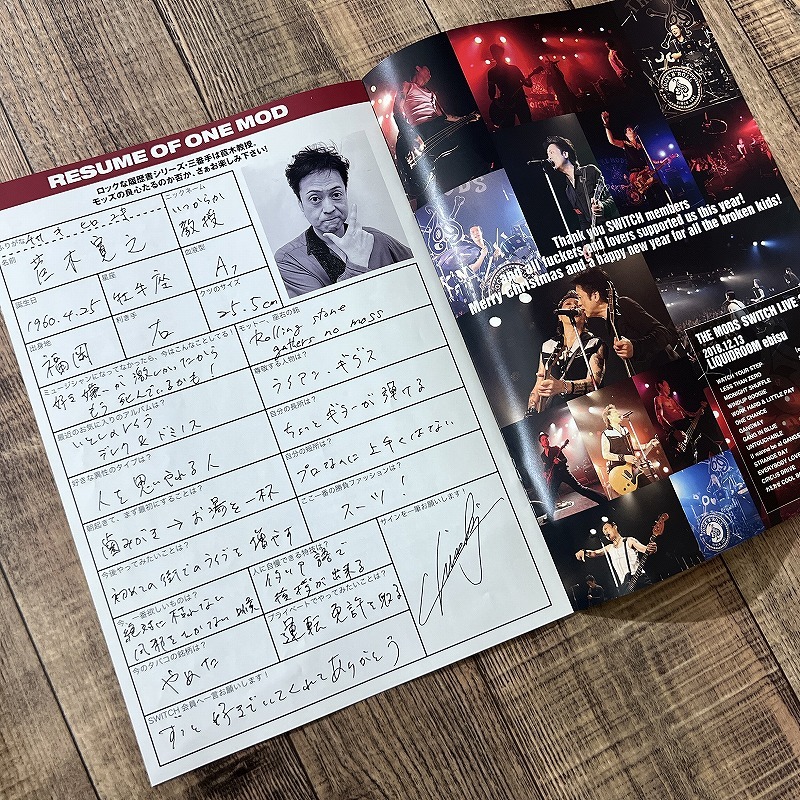 RESUME OF ONE MOD
ロックな履歴書シリーズ・三番手は苣木教授。
モッズの良心たるのか否か、さぁお楽しみ下さい!
ふりがな
名前
苣木寛之
ニックネーム
いつからか
教授
誕生日
1960.4.25
星座
牡牛座
血液型
A
出身地
福岡
利き手
右
クツのサイズ
25.5cm
ミュージシャンになってなかったら、今はこんなことしてる!
好き嫌いが激しいだから
もう死んでいるかも!
モットー、座右の銘
Rolling stone
gathers no moss
最近のお気に入りのアルバムは?
いとしのレイラ
デレク&ドミノス
尊敬する人物は?
ライアン・ギグス
好きな異性のタイプは?
人を思いやれる人
自分の長所は?
ちょっとギターが弾ける
朝起きて、まず最初にすることは?
歯みがき→お湯を一杯
自分の短所は?
プロなのに上手くはない
今後やってみたいことは?
初めての街でのライブを増やす
ここ一番の勝負ファッションは?
スーツ!
今、一番欲しいものは?
絶対に枯れない
風邪をひかない
人に自慢できる特技は?
イタリア語で
挨拶が出来る
サインを一筆お願いします!
今のタバコの銘柄は?
やめた
プライベートでやってみたいことは?
運転免許を取る
SWITCH会員へ一言お願いします!
ずっと好きでいてくれてありがとう
Thank you SWITCH members
and all fuckers and lovers supported us this year!
Merry Christmas and a happy new year for all the broken kids!
THE MODS SWITCH LIVE
2018.12.13
LIQUIDROOM ebisu
WATCH YOUR STEP
LESS THAN ZERO
MIDNIGHT SHUFFLE
WINDUP BOOGIE
WORK HARD & LITTLE PAY
ONE CHANCE
GANGWAY
GANG IN BLUE
UNTOUCHABLE
(I wanna be a) GANGS
STRANGE DAY
EVERYBODY LOVE
CIRCUS DRIVE